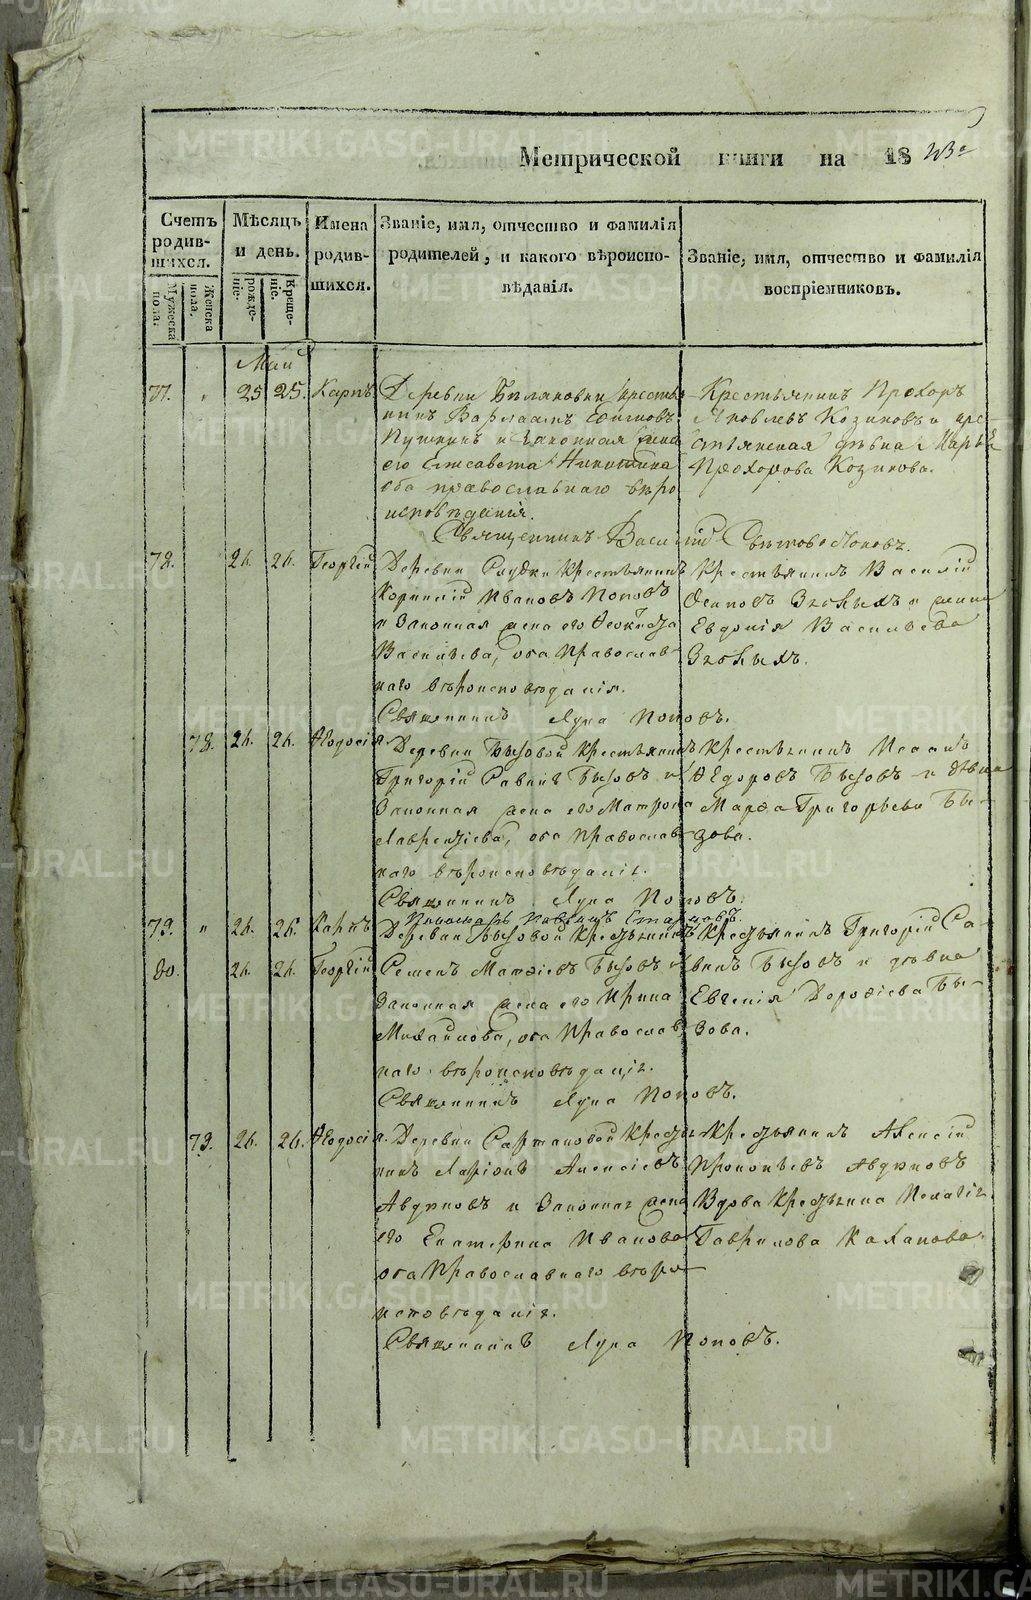 Метрической книги на 18
Счетъ родив-шихся.
Мужеска пола.
Женска пола.
Мѣсяцъ и день.
рожде-нiе.
Креще-нiе.
Имена родив-шихся.
Званiе, имя, отчество и фамилiя
родителей, и какого вѣроиспо-
вѣданiя.
Званiе, имя, отчество и фамилiя
воспрiемниковъ.
Май
77. " 25 25. Карпъ
Деревни
нинъ Варлаамъ
Пушкинъ и законная жена
его Елисавета Никитина
оба православнаго вѣро
исповѣданiя.
Крестьянинъ Прохоръ
Яковлевъ Козиковъ и кре-
стьянская дѣвка Марья
Прохорова Козикова.
Священникъ Василiй Поповъ.
78. 26. 26. Георгiй
Деревни крестьянинъ
Ивановъ Поповъ
и законная жена его
Васильева, оба православ
наго вѣроисповѣданiя.
Священникъ Лука Поповъ.
Крестьянинъ Василiй
Осиповъ Зыкыхъ и жена
Евдокiя Васильева
Зыкыхъ.
78. 26. 26. Ѳеодосiя.
Деревни Бызовой крестьянинъ
Григорiй Бызовъ и
Законная жена его Матрона
Лаврентiева, оба православ
наго вѣроисповѣданiя.
Священникъ Лука Поповъ.
Крестьянинъ Исаакъ
Ѳедоровъ Бызовъ и дѣвка
Марѳа Григорьева Бы-
зова.
79. " 26. 26. Карпъ
80. 26. 26. Георгiй
Деревни Бызовой крестьянинъ
Семенъ Матѳiевъ Бызовъ и
Законная жена его Ирина
Михайлова, оба православ
наго вѣроисповѣданiя.
Священникъ Лука Поповъ.
Крестьянинъ Григорiй Са-
винъ Бызовъ и дѣвка
Евгенiя Дороѳiева Бы-
зова.
79. 26. 26. Ѳеодосiя.
Деревни крестья
нинъ Ларiонъ Алексiевъ
Авдюковъ и Законная жена
его Екатерина Иванова
оба православнаго вѣро
исповѣданiя.
Священникъ Лука Поповъ.
Крестьянинъ Алексiй
Прокопьевъ Авдюковъ
Вдова Крестьянка Пелагiя
Гаврилова
METRIKI.GASO-URAL.RU